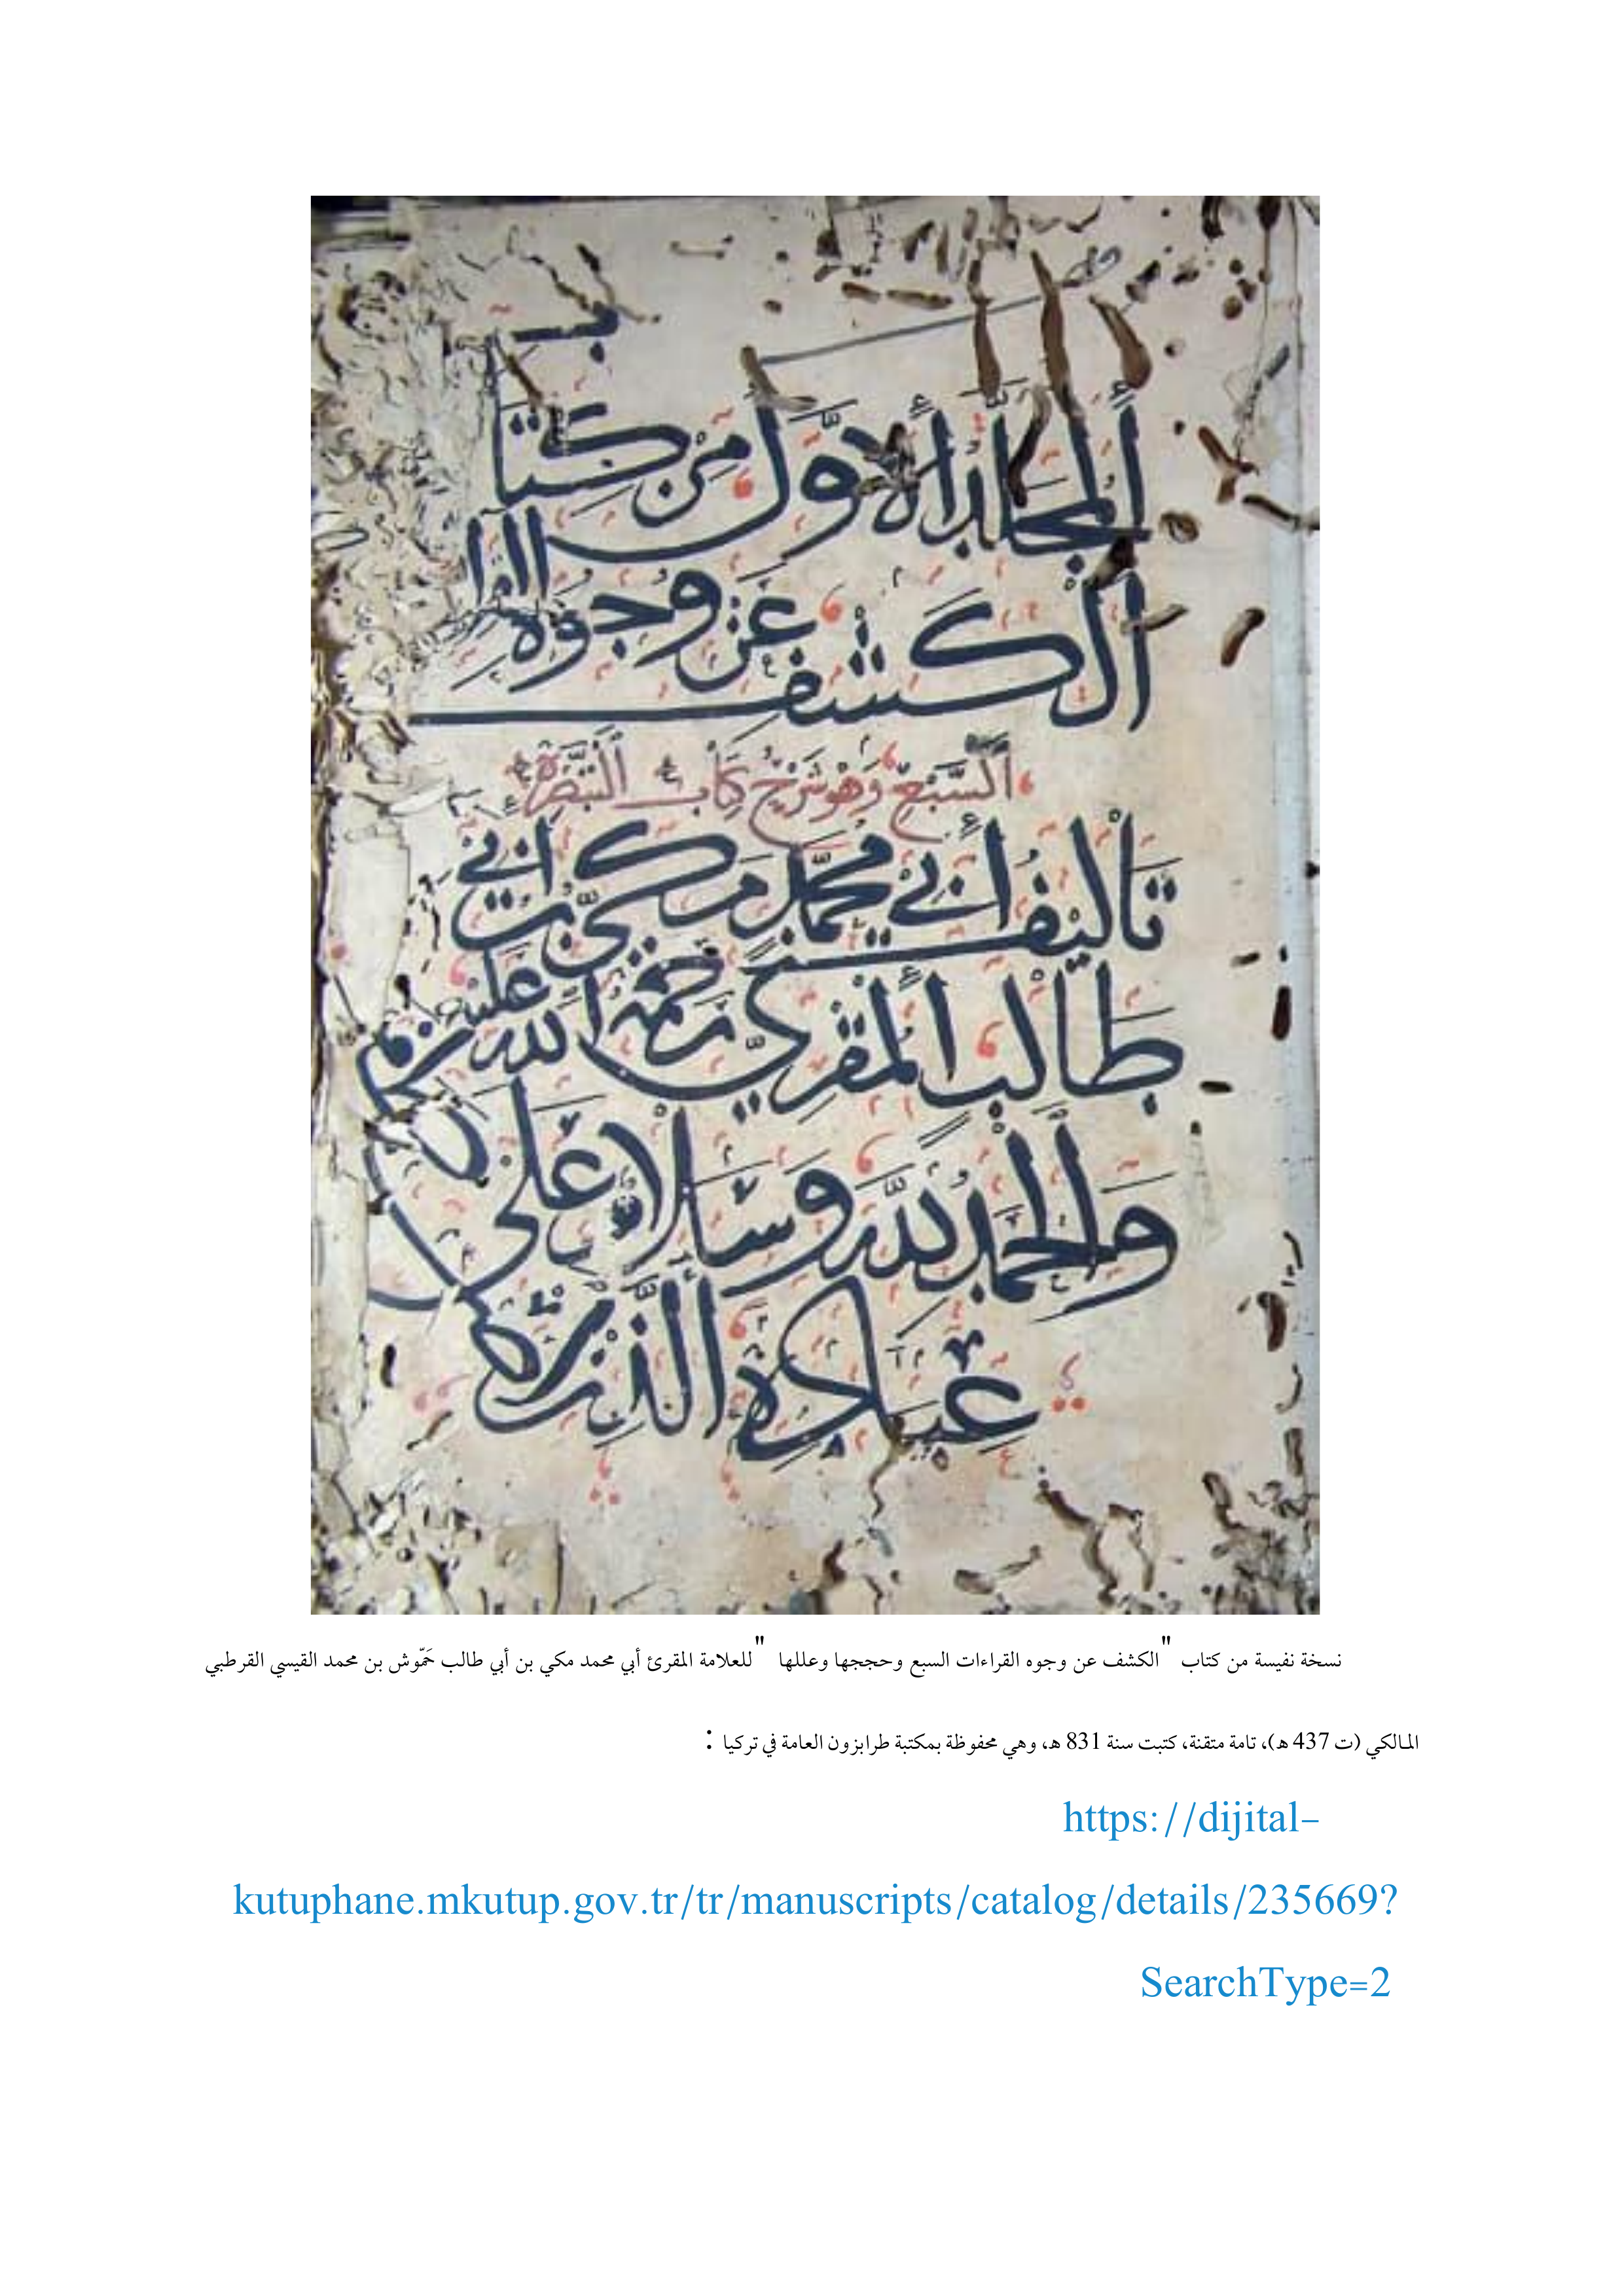 المجلد الأول من كتاب
الكشف عن وجوه القرا
السبع وهو شرح كتاب التبصرة
تأليف أبي محمد مكي بن أبي
طالب المقري رحمة الله عليه
والحمد لله وسلام على
عباده الذين
نسخة نفيسة من كتاب "الكشف عن وجوه القراءات السبع وحججها وعللها" للعلامة المقرئ أبي محمد مكي بن أبي طالب حَمّوش بن محمد القيسي القرطبي
المالكي (ت 437 هـ)، تامة متقنة، كتبت سنة 831 هـ، وهي محفوظة بمكتبة طرابزون العامة في تركيا :
https://dijital-
kutuphane.mkutup.gov.tr/tr/manuscripts/catalog/details/235669?
SearchType=2